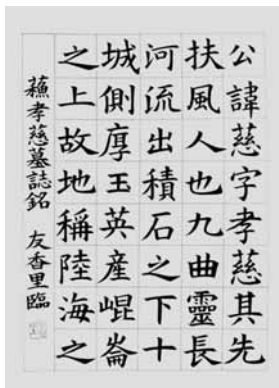 公諱慈字孝慈其先
扶風人也九曲靈長
河流出積石之下十
城側厚玉英産崐崙
之上故地稱陸海之
蘓孝慈墓誌銘 友香里臨